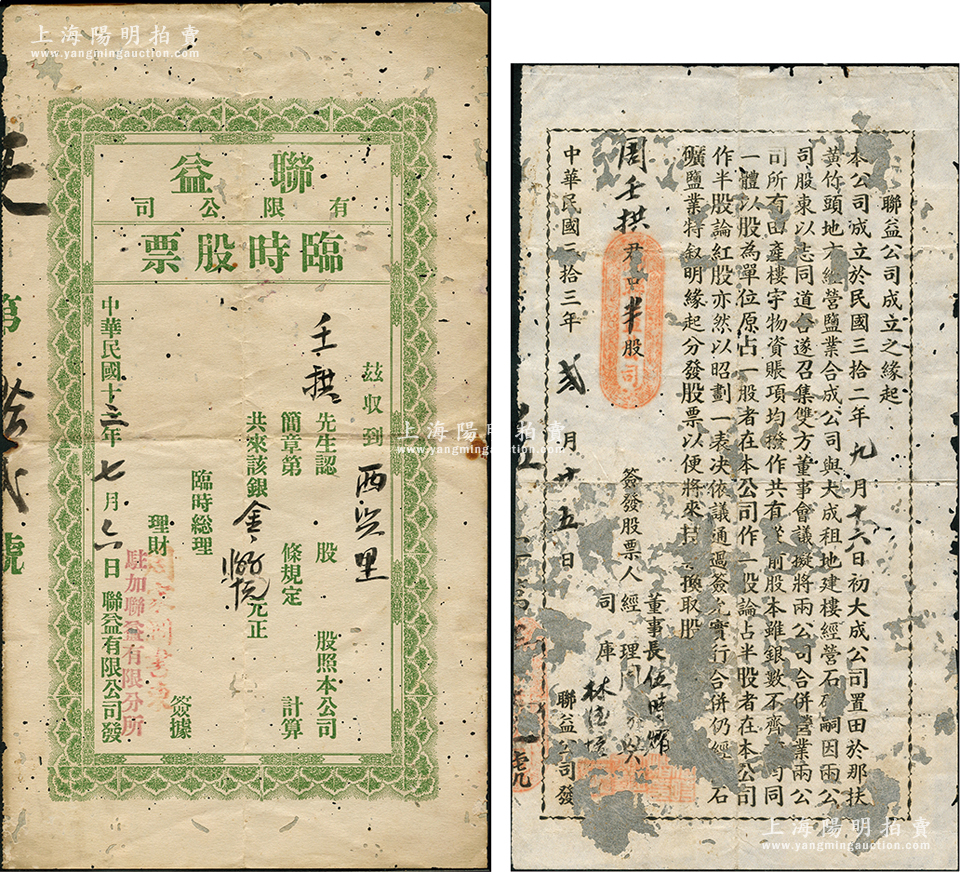 上海陽明拍賣
www.yangmingauction.com
聯益
有限公司
臨時股票
茲收到 西営里
壬拱 先生認 股 股照本公司
簡章第 條規定 計算
共來該銀 金 元正
臨時総理
理財 簽據
中華民國十三年七月六日 聯益有限公司發
駐加聯益有限分所
第 拾弍 號
上海陽明拍賣
www.yangmingauction.com
聯益公司成立之緣起
本公司成立於民國三拾二年九月十六日初大成公司置田於那扶
黃竹頭地方經營鹽業合成公司與大成租地建樓經營石 嗣因兩公
司股東以志同道合遂召集雙方董事會議擬將兩公司合併營業兩公
司所有田產樓宇物資賬項均撥作共有從前股本雖銀數不齊 同
一體以股為單位原占一股者在本公司作一股論占半股者在本公司
作半股論紅股亦然以昭劃一表决依議通過簽允實行合併仍經 石
礦鹽業特叙明緣起分發股票以便將來 換取股
周壬拱君 半股
董事長 伍時
簽發股票人經理 周
司庫 林
中華民國三拾三年 弍月廿五日 聯益公司發
第 號
上海陽明拍賣
www.yangmingauction.com